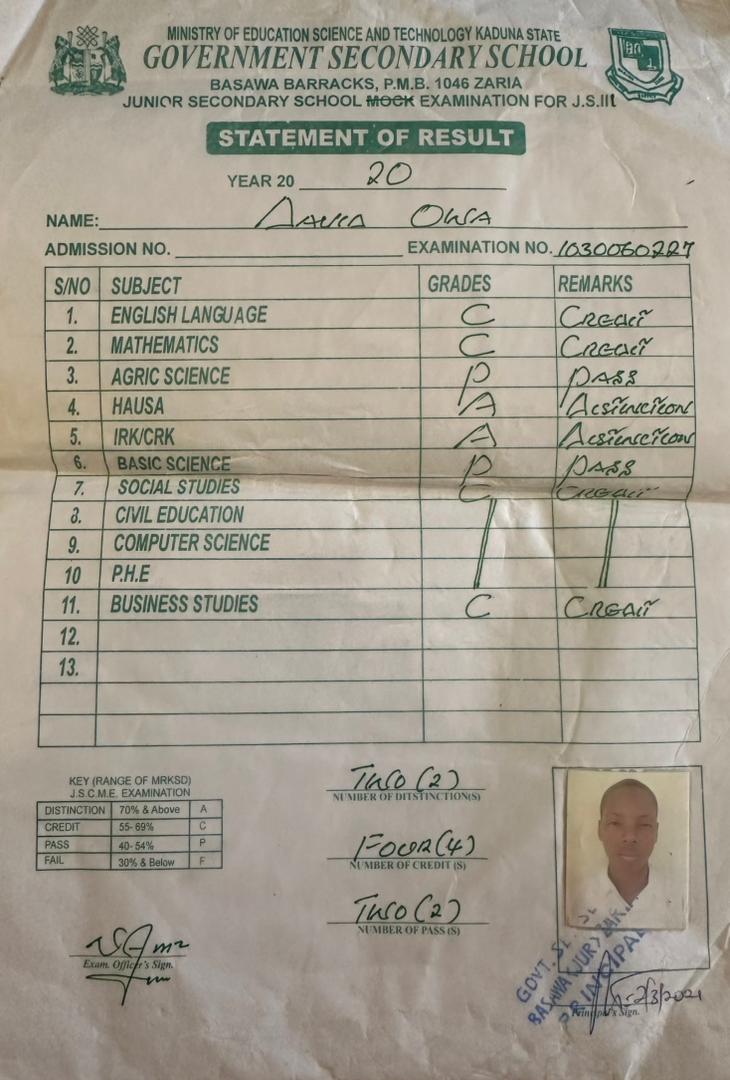 MINISTRY OF EDUCATION SCIENCE AND TECHNOLOGY KADUNA STATE
GOVERNMENT SECONDARY SCHOOL
BASAWA BARRACKS, P.M.B. 1046 ZARIA
JUNIOR SECONDARY SCHOOL MOCK EXAMINATION FOR J.S.III
STATEMENT OF RESULT
YEAR 20 20
NAME: Owa
ADMISSION NO. EXAMINATION NO. 1030060227
S/NO SUBJECT GRADES REMARKS
1. ENGLISH LANGUAGE C Credit
2. MATHEMATICS C Credit
3. AGRIC SCIENCE P PASS
4. HAUSA A Distinction
5. IRK/CRK A Distinction
6. BASIC SCIENCE P PASS
7. SOCIAL STUDIES C Credit
8. CIVIL EDUCATION
9. COMPUTER SCIENCE
10 P.H.E
11. BUSINESS STUDIES C Credit
12.
13.
KEY (RANGE OF MRKSD)
J.S.C.M.E. EXAMINATION
DISTINCTION 70% & Above A
CREDIT 55-69% C
PASS 40-54% P
FAIL 30% & Below F
Two (2)
NUMBER OF DITSTINCTION(S)
Four (4)
NUMBER OF CREDIT (S)
Two (2)
NUMBER OF PASS (S)
Exam. Officer's Sign.
GOVT. SE
BASAWA (JUR) ZAR
PRINCIPAL
2/3/2021
Principal's Sign.